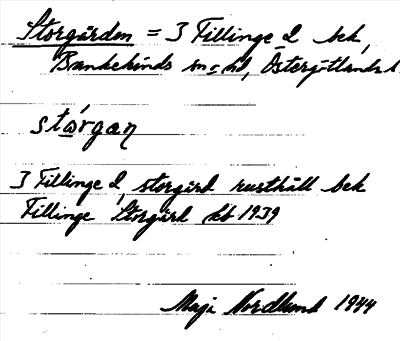 Storgården = 3 Fillinge 2 bek,
Bankekinds sn o hd, Östergötlands l.
stǫ́rgaṇ
3 Fillinge 2, storgård rusthåll bek
Fillinge Storgård kb 1939
Maji Nordlund 1944